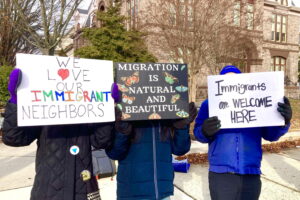 WE
LOVE
OUR
IMMIGRANT
NEIGHBORS
MIGRATION
IS
NATURAL
AND
BEAUTIFUL
Immigrants
are WELCOME
HERE